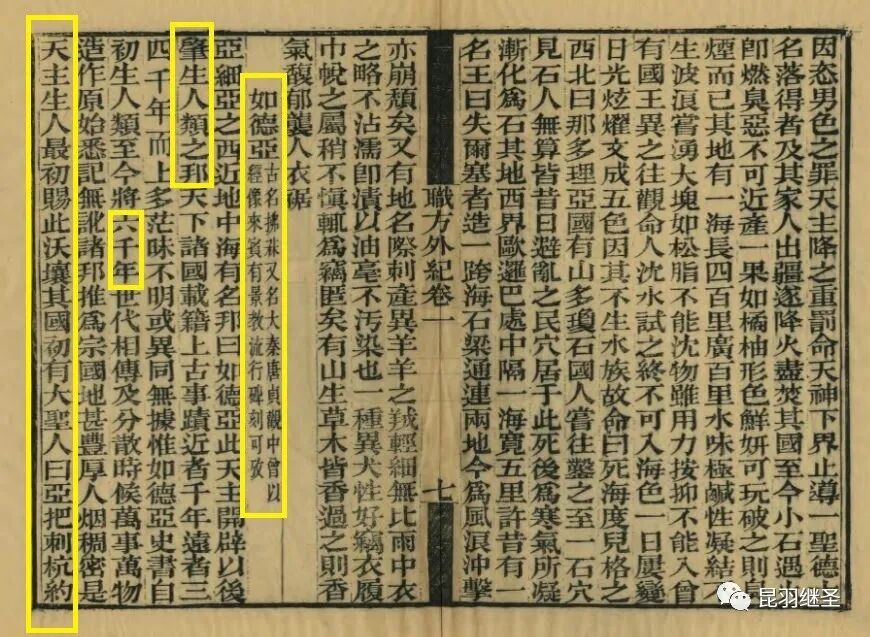 因恣男色之罪天主降之重罰命天神下界止導一聖德士
名落得者及其家人出疆遂降火盡焚其國至今小石遇火
卽燃臭惡不可近產一果如橘柚形色鮮妍可玩破之則臭
煙而已其地有一海長四百里廣百里水味極鹹性凝結不
生波浪嘗湧大塊如松脂不能沈物雖用力按抑不能入曾
有國王異之往觀命人沈水試之終不可入海色一日屢變
日光炫燿文成五色因其不生水族故命曰死海度兒格之
西北曰那多理亞國有山多瓊石國人嘗往鑿之至一石穴
見石人無算皆昔日避亂之民穴居于此死後爲寒氣所凝
漸化爲石其地西界歐邏巴處中隔一海寬五里許昔有一
名王曰失爾塞者造一跨海石梁通連兩地今爲風浪沖擊
職方外紀卷一
七
亦崩頽矣又有地名際剌產異羊羊之羢輕細無比雨中衣
之略不沾濡卽漬以油毫不汚染也一種異犬性好竊衣履
巾帨之屬稍不愼輒爲竊匿矣有山生草木皆香過之則香
氣馥郁襲人衣裾
如德亞古名拂菻又名大秦唐貞觀中曾以
經像來賓有景教流行碑刻可攷
亞細亞之西近地中海有名邦曰如德亞此天主開辟以後
肇生人類之邦天下諸國載籍上古事蹟近者千年遠者三
四千年而上多茫昧不明或異同無據惟如德亞史書自
初生人類至今將六千年世代相傳及分散時候萬事萬物
造作原始悉記無訛諸邦推爲宗國地甚豐厚人烟稠密是
天主生人最初賜此沃壤其國初有大聖人曰亞把剌杭約
昆羽继圣